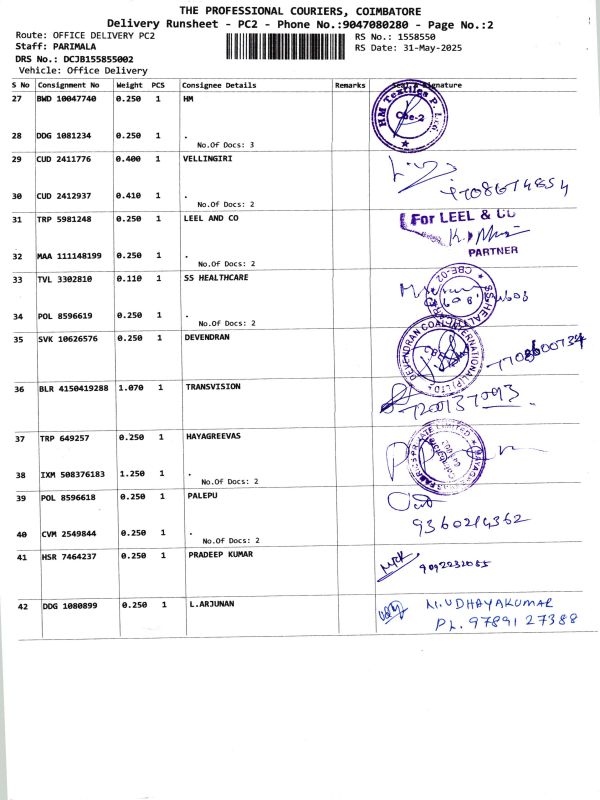 THE PROFESSIONAL COURIERS, COIMBATORE
Delivery Runsheet - PC2 - Phone No.:9047080280 - Page No.:2
Route: OFFICE DELIVERY PC2
Staff: PARIMALA
DRS No.: DCJB155855002
Vehicle: Office Delivery
RS No.: 1558550
RS Date: 31-May-2025
S No Consignment No Weight PCS Consignee Details Remarks Seal & Signature
27 BWD 10047740 0.250 1 HM
HM Textiles P. Ltd.
Cbe-2
28 DDG 1081234 0.250 1 .
No.Of Docs: 3
29 CUD 2411776 0.400 1 VELLINGIRI
30 CUD 2412937 0.410 1 .
No.Of Docs: 2
31 TRP 5981248 0.250 1 LEEL AND CO
For LEEL & CO
PARTNER
32 MAA 111148199 0.250 1 .
No.Of Docs: 2
33 TVL 3302810 0.110 1 SS HEALTHCARE
CBE-02
34 POL 8596619 0.250 1 .
No.Of Docs: 2
35 SVK 10626576 0.250 1 DEVENDRAN
36 BLR 4150419288 1.070 1 TRANSVISION
37 TRP 649257 0.250 1 HAYAGREEVAS
38 IXM 508376183 1.250 1 .
No.Of Docs: 2
39 POL 8596618 0.250 1 PALEPU
9360214362
40 CVM 2549844 0.250 1 .
No.Of Docs: 2
41 HSR 7464237 0.250 1 PRADEEP KUMAR
9092232055
42 DDG 1080899 0.250 1 L.ARJUNAN
M.UDHAYAKUMAR
PH. 97891 27388